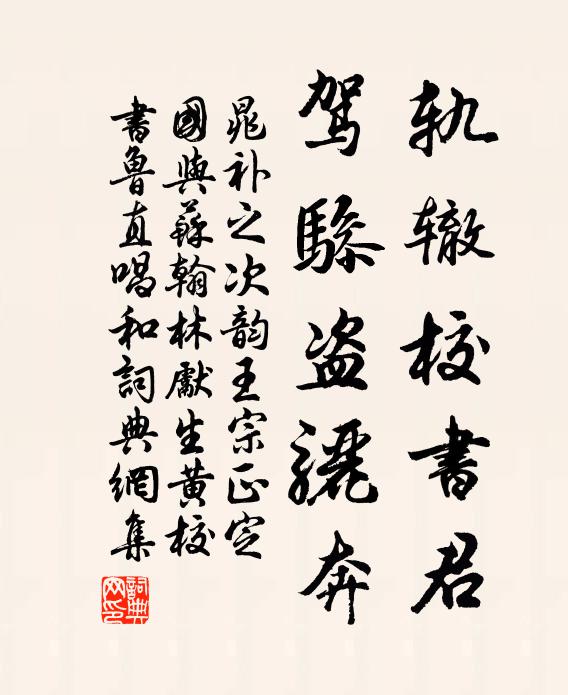 轨辙校書君
驾驂盗驪奔
晁补之次韵王宗正定
國與蘇翰林獻生黄校
書魯直唱和詞典網集
詞典网印